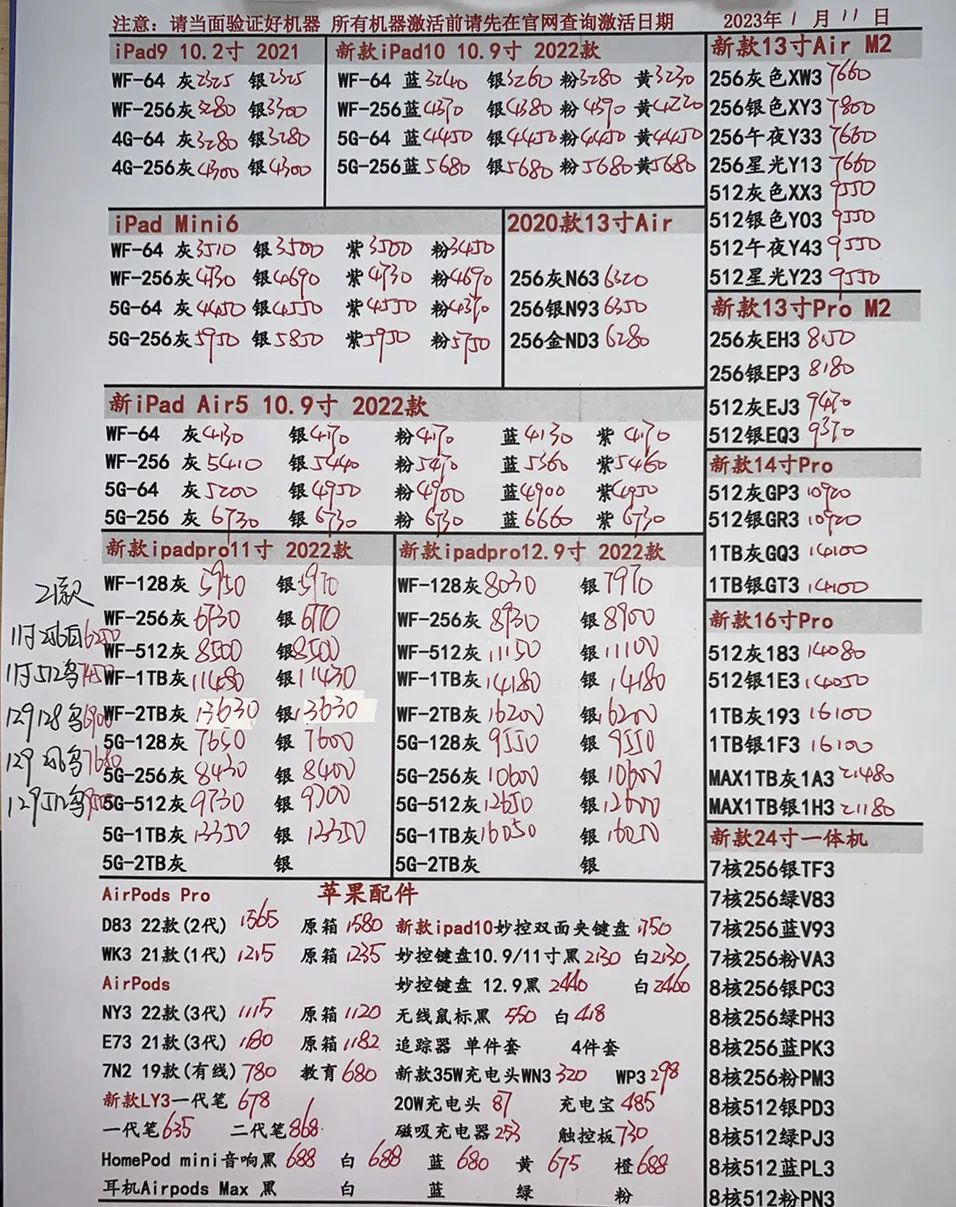 注意: 请当面验证好机器 所有机器激活前请先在官网查询激活日期 2023年1月11日
iPad9 10.2寸 2021
WF-64 灰2325 银2325
WF-256灰3280 银3300
4G-64 灰3280 银3280
4G-256灰4300 银4300
新款iPad10 10.9寸 2022款
WF-64 蓝3240 银3260 粉3280 黄3230
WF-256蓝4370 银4380 粉4390 黄4220
5G-64 蓝4450 银4450 粉4450 黄4450
5G-256蓝5680 银5680 粉5680 黄5680
iPad Mini6
WF-64 灰3510 银3500 紫3500 粉3450
WF-256灰4730 银4690 紫4730 粉4690
5G-64 灰4450 银4550 紫4550 粉4370
5G-256灰5950 银5850 紫5950 粉5750
2020款13寸Air
256灰N63 6320
256银N93 6350
256金ND3 6280
新iPad Air5 10.9寸 2022款
WF-64 灰4130 银4170 粉4170 蓝4130 紫4170
WF-256 灰5410 银5440 粉5470 蓝5360 紫5460
5G-64 灰5200 银4950 粉4900 蓝4900 紫4950
5G-256 灰6730 银6730 粉6730 蓝6660 紫6730
新款ipadpro11寸 2022款
WF-128灰5950 银5970
WF-256灰6730 银6770
WF-512灰8500 银8500
WF-1TB灰11480 银11430
WF-2TB灰13630 银13630
5G-128灰7650 银7600
5G-256灰8430 银8400
5G-512灰9730 银9700
5G-1TB灰12350 银12350
5G-2TB灰 银
新款ipadpro12.9寸 2022款
WF-128灰8030 银7970
WF-256灰8930 银8900
WF-512灰11150 银11100
WF-1TB灰14180 银14180
WF-2TB灰16200 银16200
5G-128灰9550 银9550
5G-256灰10600 银10600
5G-512灰12650 银12600
5G-1TB灰16050 银16050
5G-2TB灰 银
21款
11寸256 6250
11寸512 7450
129 128 6900
129 256 7680
129 512
苹果配件
AirPods Pro
D83 22款(2代) 1565 原箱1580
WK3 21款(1代) 1215 原箱1235
AirPods
NY3 22款(3代) 1115 原箱1120
E73 21款(3代) 1180 原箱1182
7N2 19款(有线) 780 教育680
新款LY3一代笔 678
一代笔635 二代笔868
新款ipad10妙控双面夹键盘1750
妙控键盘10.9/11寸黑2130 白2130
妙控键盘 12.9黑 2440 白2460
无线鼠标黑 550 白418
追踪器 单件套 4件套
新款35W充电头WN3 320 WP3 298
20W充电头 87 充电宝 485
磁吸充电器253 触控板730
HomePod mini音响黑 688 白 688 蓝 680 黄 675 橙688
耳机Airpods Max 黑 白 蓝 绿 粉
新款13寸Air M2
256灰色XW3 7660
256银色XY3 7800
256午夜Y33 7660
256星光Y13 7660
512灰色XX3 9550
512银色Y03 9550
512午夜Y43 9550
512星光Y23 9550
新款13寸Pro M2
256灰EH3 8150
256银EP3 8180
512灰EJ3 9470
512银EQ3 9370
新款14寸Pro
512灰GP3 10920
512银GR3 10920
1TB灰GQ3 14100
1TB银GT3 14100
新款16寸Pro
512灰183 14080
512银1E3 14050
1TB灰193 16100
1TB银1F3 16100
MAX1TB灰1A3 21480
MAX1TB银1H3 21180
新款24寸一体机
7核256银TF3
7核256绿V83
7核256蓝V93
7核256粉VA3
8核256银PC3
8核256绿PH3
8核256蓝PK3
8核256粉PM3
8核512银PD3
8核512绿PJ3
8核512蓝PL3
8核512粉PN3